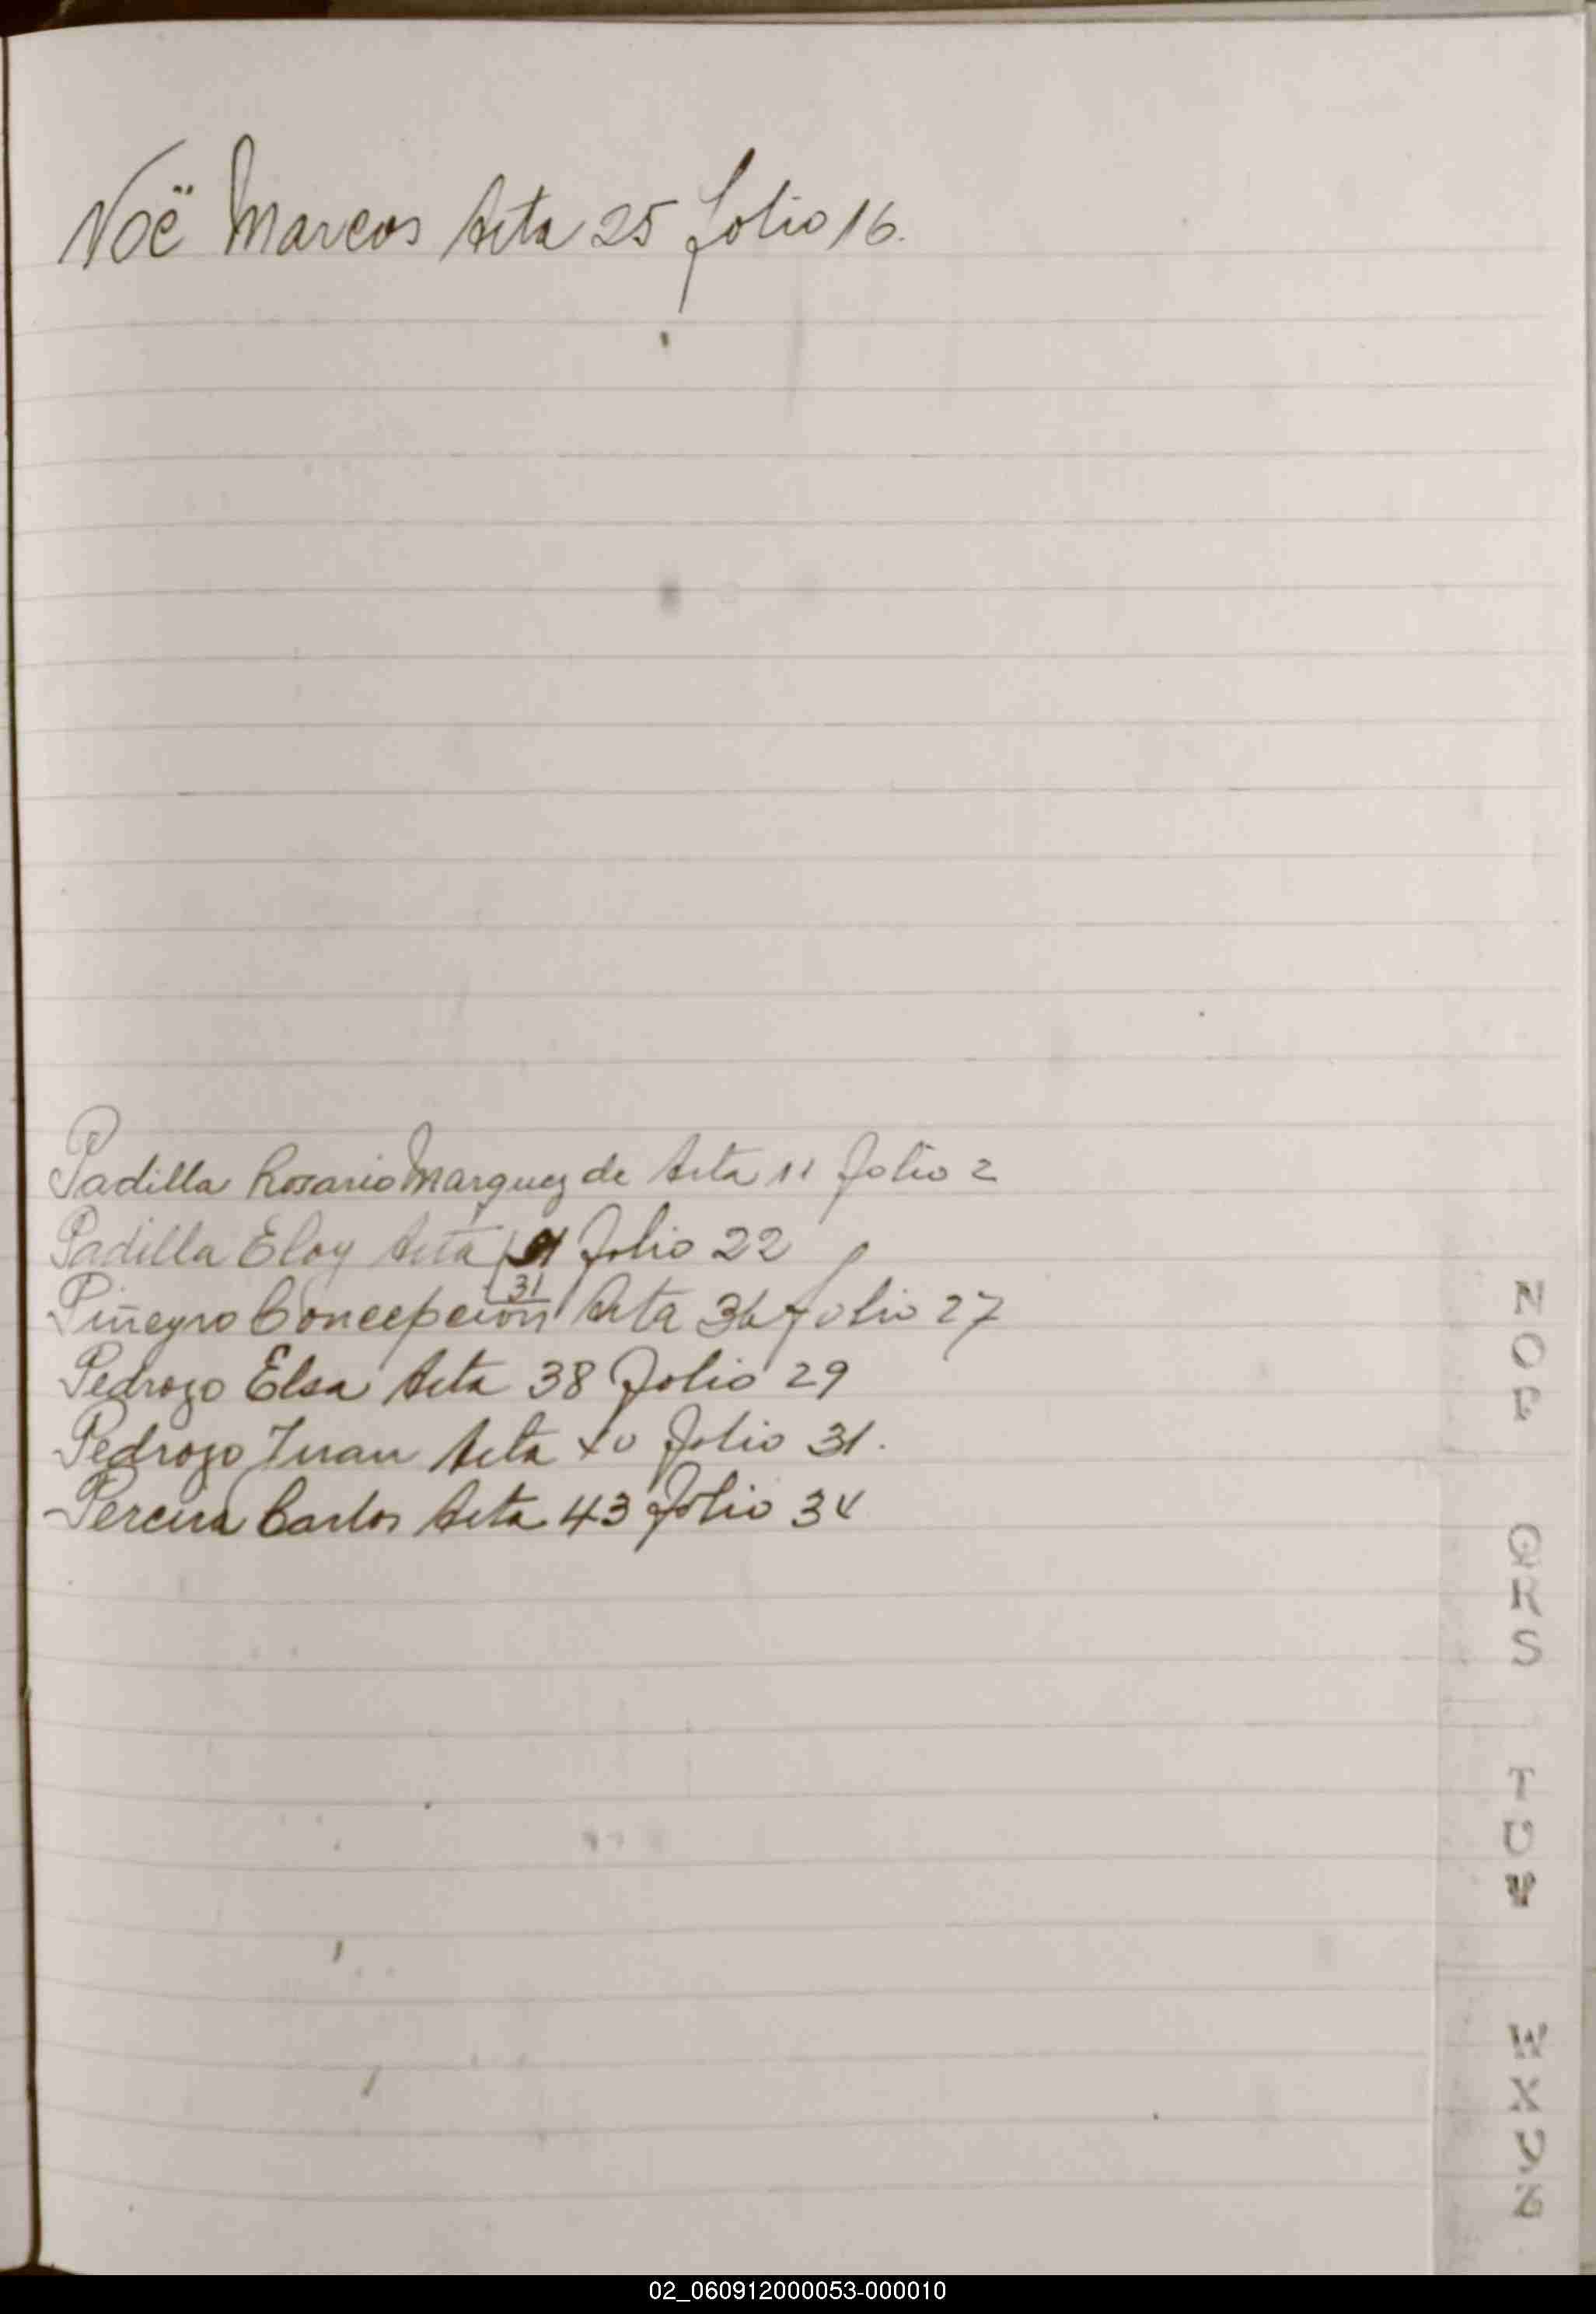 Noë Marcos Acta 25 folio 16.
Padilla Rosario Marquez de Acta 11 folio 2
Padilla Eloy Acta 31 folio 22
Piñeyro Concepción Acta 36 folio 27
Pedrozo Elsa Acta 38 folio 29
Pedrozo Juan Acta 40 folio 31.
Pereira Carlos Acta 43 folio 34
N
O
P
Q
R
S
T
U
V
W
X
Y
Z
02_060912000053-000010